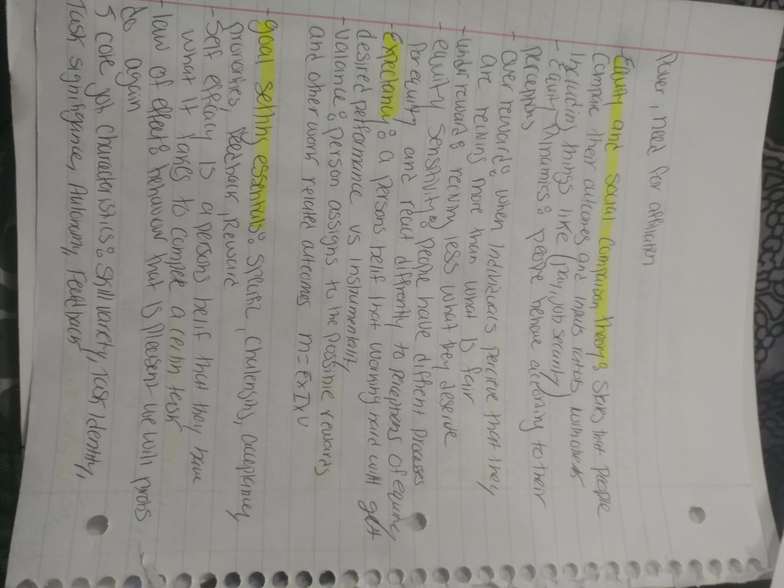 Power, need for affiliation
- Equity and social comparison theory: states that people
compare their outcomes and inputs ratios with others
Including things like (pay, job security)
- Equity Dynamics: people behave according to their
perceptions
- over reward: when individuals percieve that they
are reciving more than what is fair
- under reward: reciving less what they deserve
- equity sensitivity: people have diffrent processes
for equity and react diffrently to perceptions of equity
- Expectancy: a persons belif that working hard will get
desired performance vs instrumentality
- Valance: person assigns to the possible rewards
and other work related outcomes m = E x I x V
- goal setting essentials: specific, challensing, acceptance,
priorities, feedback, Reward
- Self efficacy is a persons belif that they have
what it takes to complete a certin task
- law of effect: behavior that is pleasent we will probs
do again
5 core job characteristics: Skill variety, Task identity,
Task significance, Autonomy, Feedback